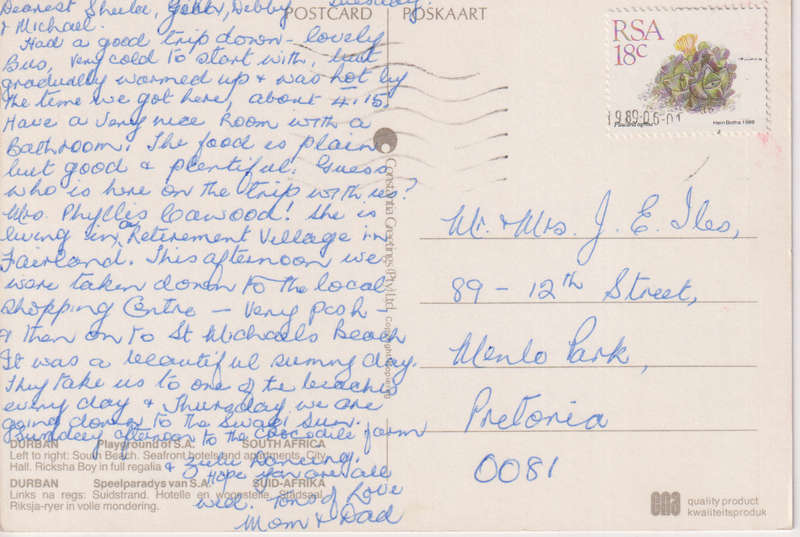 Dearest Sheila, John, Debby, Tuesday.
& Michael.
Had a good trip down - lovely
Bus, very cold to start with, but
gradually warmed up & was hot by
the time we got here, about 4.15.
Have a very nice Room with a
Bathroom! The food is plain
but good & plentiful. Guess
who is here on the trip with us?
Mrs. Phyllis Cawood! She is
living in a Retirement Village in
Fairland. This afternoon we
were taken down to the local
Shopping Centre - very posh -
& then on to St Michaels Beach
It was a beautiful sunny day.
They take us to one of the beaches
every day & Thursday we are
going down to the Swazi Sun.
Sunday afternoon to the Crocodile farm
& Zulu Dancing.
Hope you are all
well. Tons of Love
Mom & Dad
POSTCARD POSKAART
RSA
18c
1989-06-01
Hein Botha 1988
Constantia Greetings (Pty) Ltd.
Mr. & Mrs. J. E. Iles,
89 - 12th Street,
Menlo Park,
Pretoria
0081
DURBAN Playground of S.A. SOUTH AFRICA
Left to right: South Beach. Seafront hotels and apartments. City
Hall. Ricksha Boy in full regalia
DURBAN Speelparadys van S.A. SUID-AFRIKA
Links na regs: Suidstrand. Hotelle en woonstelle. Stadsaal.
Riksja-ryer in volle mondering.
ena quality product
kwaliteitsproduk